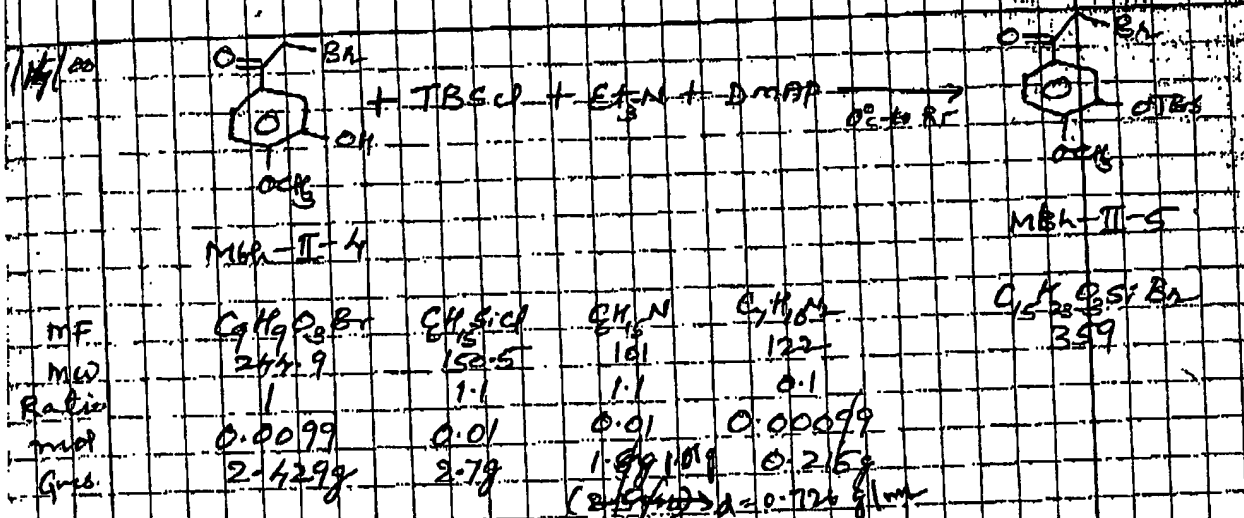 O Br O Br
+ TBSCl + Et3N + DMAP
0°C to RT
OH OTBS
OCH3 OCH3
MBR-II-4 MBR-II-5
MF C9H9O3Br C6H15SiCl C6H15N C7H10N2 C15H23O3SiBr
MW 244.9 150.5 101 122 359
Ratio 1 1.1 1.1 0.1
mol 0.0099 0.01 0.01 0.00099
Gms 2.429g 2.7g 1.01g 0.215g
d = 0.726 g/